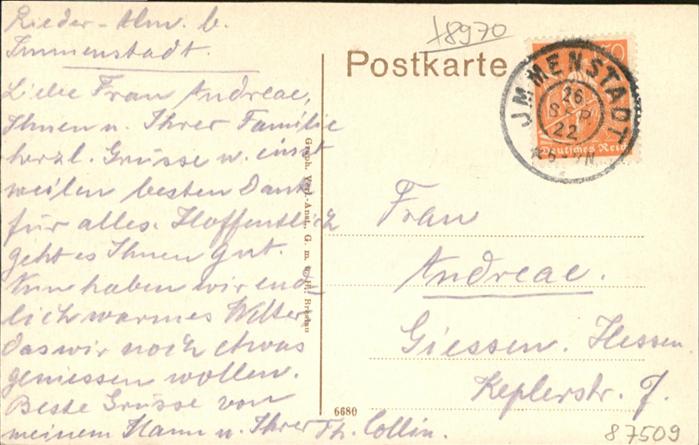 Rieder-Alm. b.
Immenstadt.
Liebe Frau Andreae,
Ihnen u. Ihrer Familie
herzl. Grüsse u. einst
weilen besten Dank
für alles. Hoffentlich
geht es Ihnen gut.
Nun haben wir end-
lich warmes Wetter
das wir noch etwas
geniessen wollen.
Beste Grüsse von
meinem Mann u. Ihrer Th. Collin.
+8970
Postkarte
JMMENSTADT
26
SEP
22
Deutsches Reich
Graph. Verl.-Anst. G. m. b. H. Breslau
Frau
Andreae.
Giessen. Hessen
Keplerstr. 7.
6680
87509